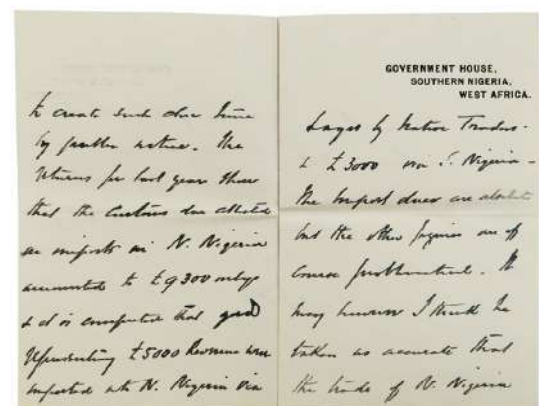 to create such due time
by further notice. The
returns for last year show
that the Customs due
on imports in N. Nigeria
amounted to £9300 only
& it is computed that good
representing £5000 Revenue were
imported into N. Nigeria via
GOVERNMENT HOUSE,
SOUTHERN NIGERIA,
WEST AFRICA.
Lagos by Native Traders -
& £3000 via S. Nigeria -
The import dues are absolute
but the other figures are of
course problematical. It
may however I think be
taken as accurate that
the trade of N. Nigeria